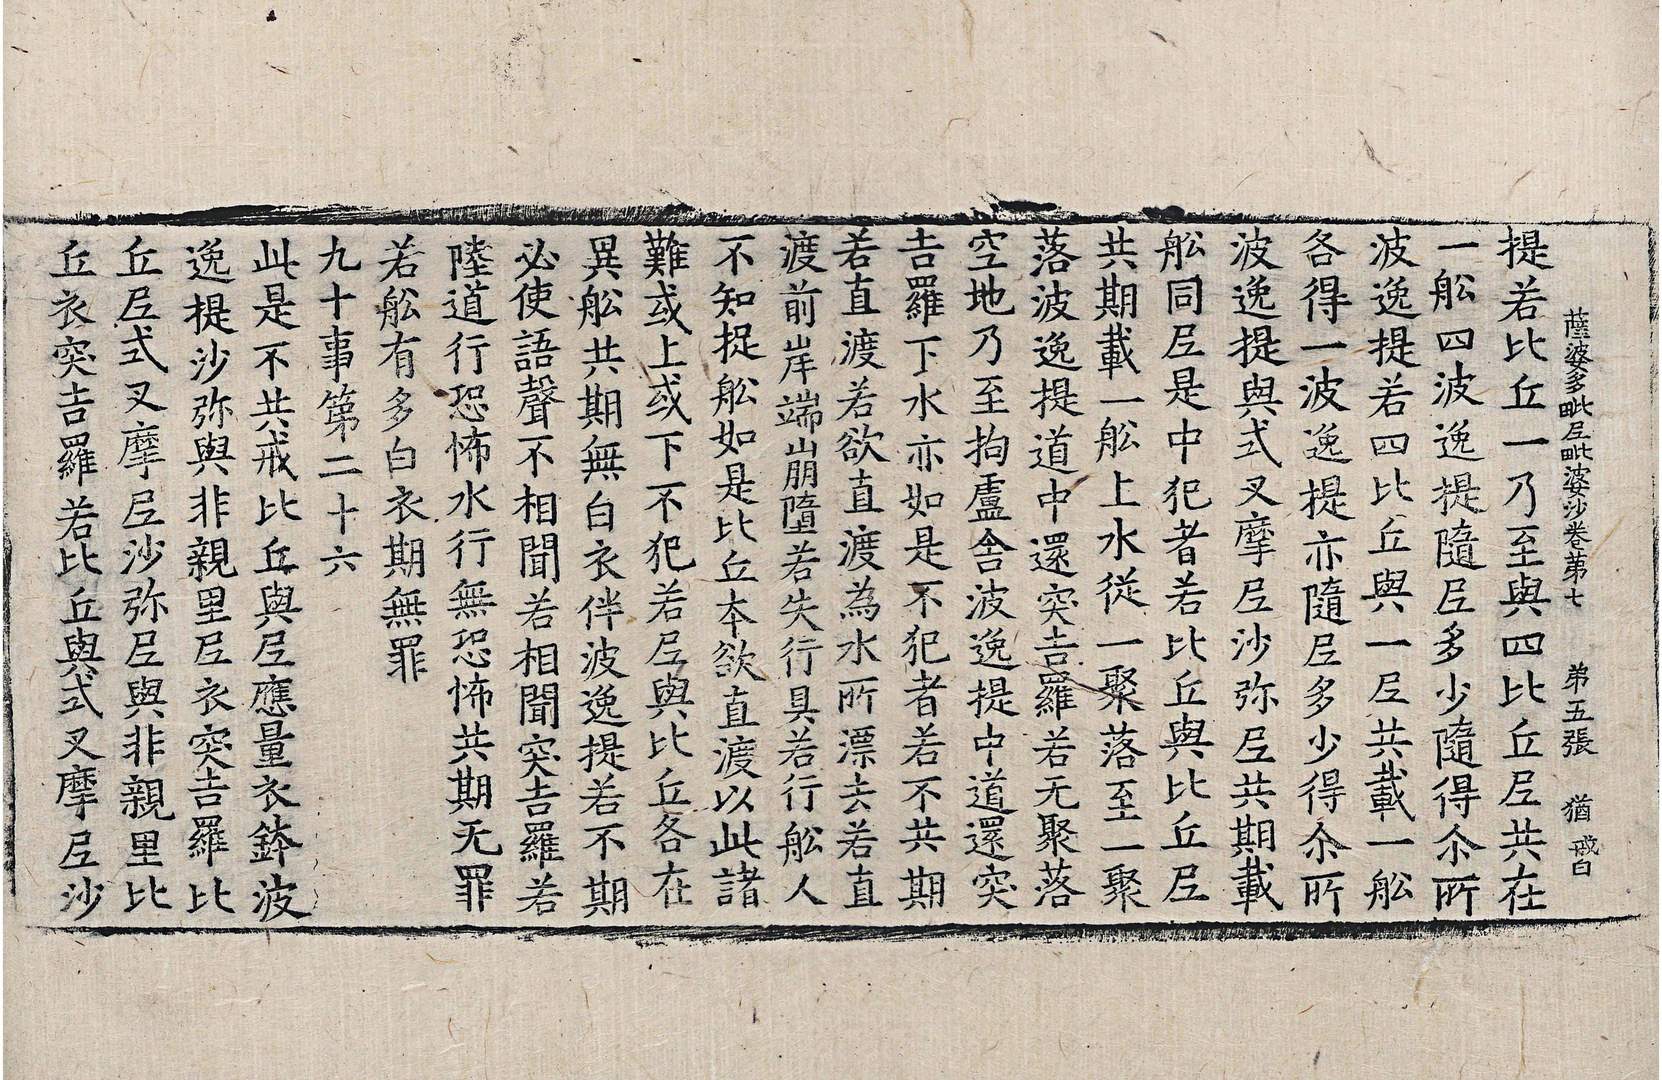 薩婆多毗尼毗婆沙卷苐七 苐五張 猶 戒白
提若比丘一乃至與四比丘尼共在
一舩四波逸提隨尼多少隨得尒所
波逸提若四比丘與一尼共載一舩
各得一波逸提亦隨尼多少得尒所
波逸提與式叉摩尼沙弥尼共期載
舩同尼是中犯者若比丘與比丘尼
共期載一舩上水從一聚落至一聚
落波逸提道中還突吉羅若无聚落
空地乃至拘盧舍波逸提中道還突
吉羅下水亦如是不犯者若不共期
若直渡若欲直渡為水所漂去若直
渡前岸端崩墮若失行具若行舩人
不知捉舩如是比丘本欲直渡以此諸
難或上或下不犯若尼與比丘各在
異舩共期無白衣伴波逸提若不期
必使語聲不相聞若相聞突吉羅若
陸道行恐怖水行無恐怖共期无罪
若舩有多白衣期無罪
九十事第二十六
此是不共戒比丘與尼應量衣鉢波
逸提沙弥與非親里尼衣突吉羅比
丘尼式叉摩尼沙弥尼與非親里比
丘衣突吉羅若比丘與式叉摩尼沙